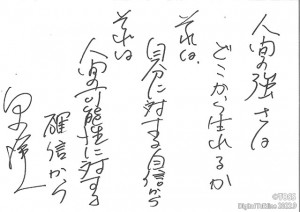 人間の強さは
どこから生れるか
それは
自分に対する自信から
それは
人間の可能性に対する
確信から
©TOSS
Digital Talkline 2022.9